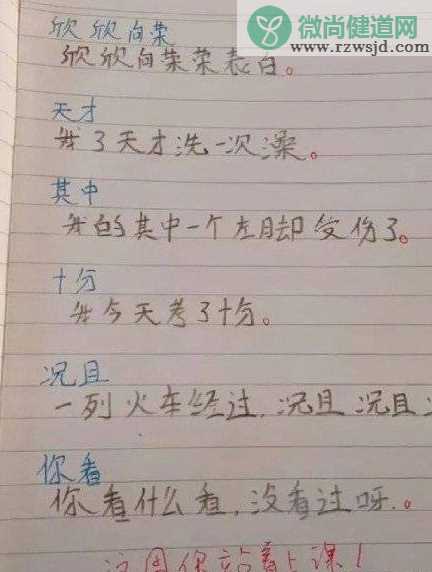 微尚健道网
www.rzwsjd.com
欣欣向荣
欣欣向荣荣表白。
天才
我3天才洗一次澡。
其中
我的其中一个左脚受伤了。
十分
我今天考了十分。
况且
一列火车经过,况且况且
你看
你看什么看,没看过呀。
这周你站着上课!